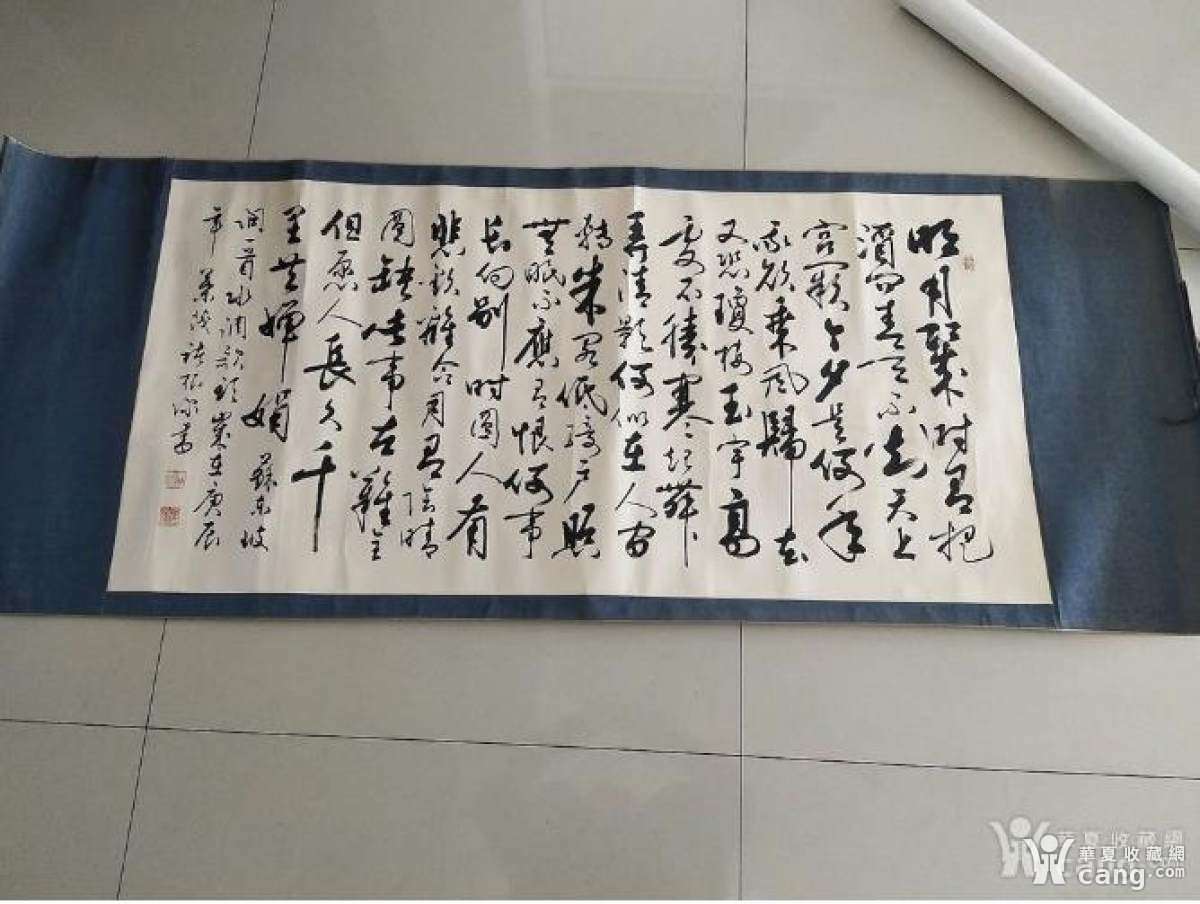 明月幾时有把
酒问青天不知天上
宫闕今夕是何年
我欲乘风歸去
又恐瓊楼玉宇高
處不勝寒起舞
弄清影何似在人间
转朱阁低绮户照
無眠不應有恨何事
长向别时圆人有
悲歡難合月有陰晴
圆缺此事古難全
但愿人長久千
里共嬋娟 蘇東坡
词一首水调歌頭 歲在庚辰
年 書
華夏收藏網
cang.com